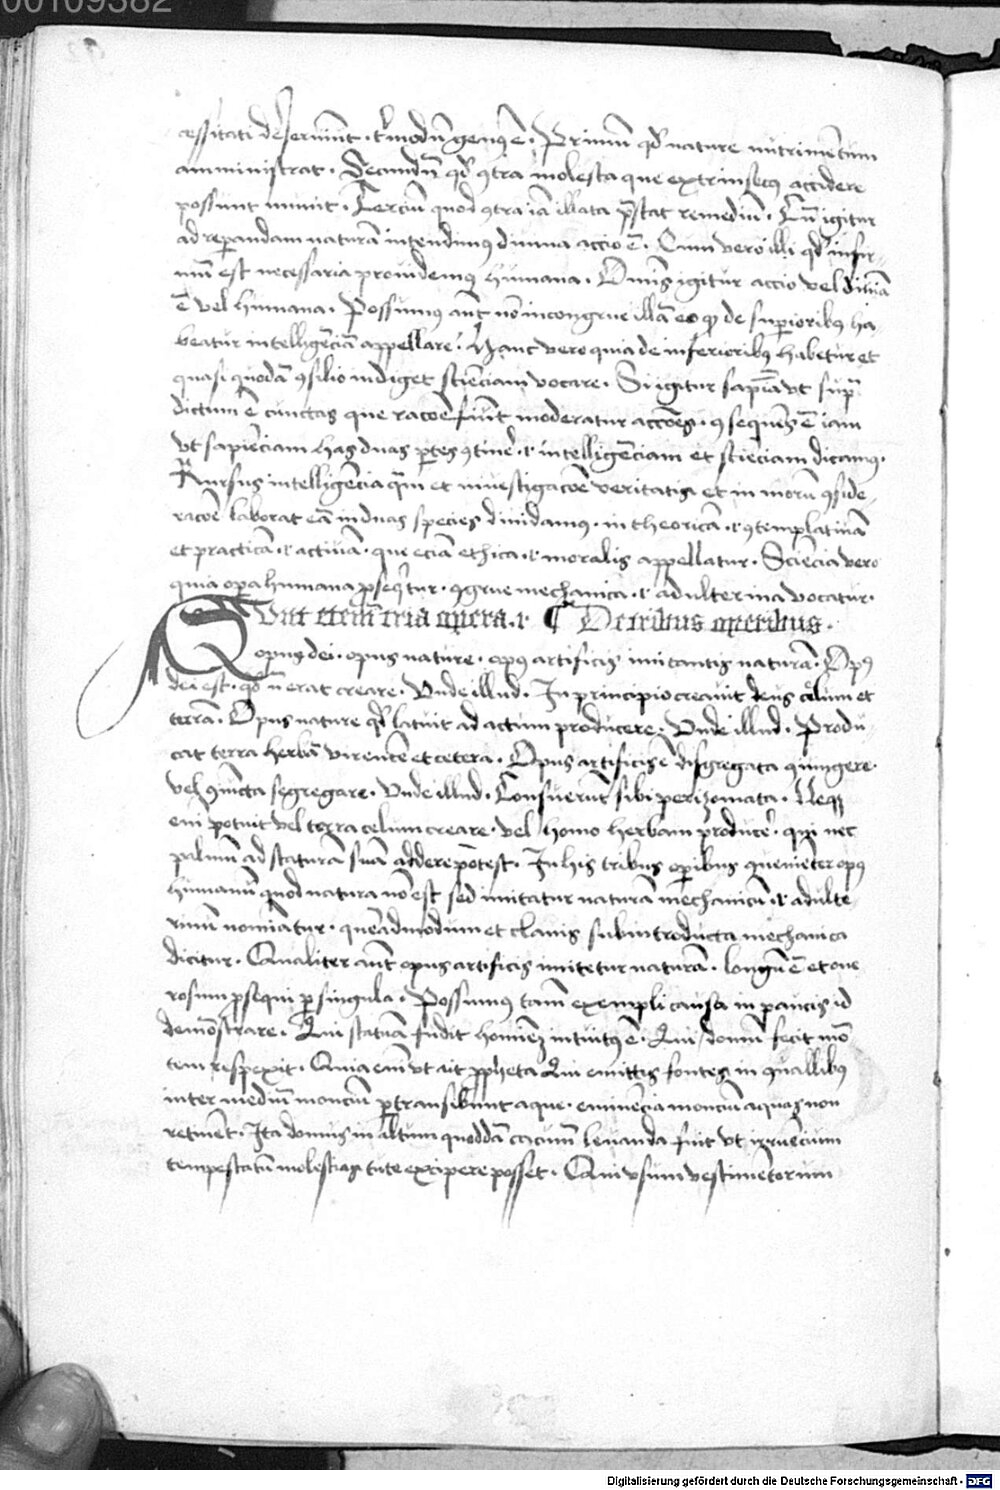 00109382
cessitati deseruiunt · t'modū gen9 ē · Primū qd' nature nutrimentum
amministrat · Secundū qd' 9tra molesta que extrinsec9 accidere
possunt munit · Terciū quod 9tra iā illata p̄stat remediū · Cū igitur
ad reparandam naturā intendim9 diuina accio ē · Cum vero illi qd' infir-
mū est necessaria prouidem9 humana · Omīs igitur accio vel diuīa
ē vel humana · Possum9 aūt nō incongrue illā eo qȝ de superiorib9 ha
beatur intelligēciā appellare · Hanc vero quia de inferiorib9 habetur et
quasi quodā 9silio indiget sciēciam vocare · Si igitur sapiā vt sup̄
dictum ē cunctas que racōe fiūt moderatur accōes · 9sequēs ē iam
vt sapiēciam has duas p̱tes 9tine' · r intelligēciam et sciēciam dicam9 ·
Rursus intelligēcia qm̄ et inuestigacōe veritatis et in morū 9side-
racōe laborat eā in duas species diuidam9 · in theoricā · r 9templatiuā
et practicā · r actiuā · que eciā ethica · r moralis appellatur · Sciēcia vero
quia opera humana p̱seq'tur · 9grue mechanica · r adulterina vocatur ·
Sunt etem̄ tria opera · r · ¶ De tribus operibus ·
opus dei · opus nature · op9 artificis imitantis naturā · Op9
dei est · qd' n̄ erat creare · Vnde illud · In principio creauit deus celum et
terrā · Opus nature qd' latuit ad actum producere · Vnde illud · Produ-
cat terra herbā virentē et cetera · Opus artificis ē disgregata 9iungere ·
vel 9iūcta segregare · Vnde illud · Consuerūt sibi perizomata · Neqȝ
eni potuit vel terra celum creare · vel homo herbam produce' · qui nec
palmū ad staturā suā addere potest · In his tribus opibus 9uenieter op9
humanū quod natura nō est sed imitatur naturā mechanicū · r adulte
rinū nomiātur · quēadmodum et clauis subintroducta mechanica
dicitur · Qualiter aūt opus artificis imitetur naturā · longū ē et one
rosum p̱sequi p̱ singula · Possum9 tam̄ exempli causa in paucis id
demōstrare · Qui statuā fudit hominēȝ intuit9 ē · Qui domū fecit mō
tem respexit · Quia em̄ vt ait ppheta Qui emittis fontes in 9uallib9
inter mediū monciū p̱transibunt aque · eminēcia monciū aquas non
retinēt · Ita domus in altum quoddā cacumē leuanda fuit vt irruēcium
tempestatū molestias tute excipere posset · Qui vsum vestimētorum
Digitalisierung gefördert durch die Deutsche Forschungsgemeinschaft · DFG